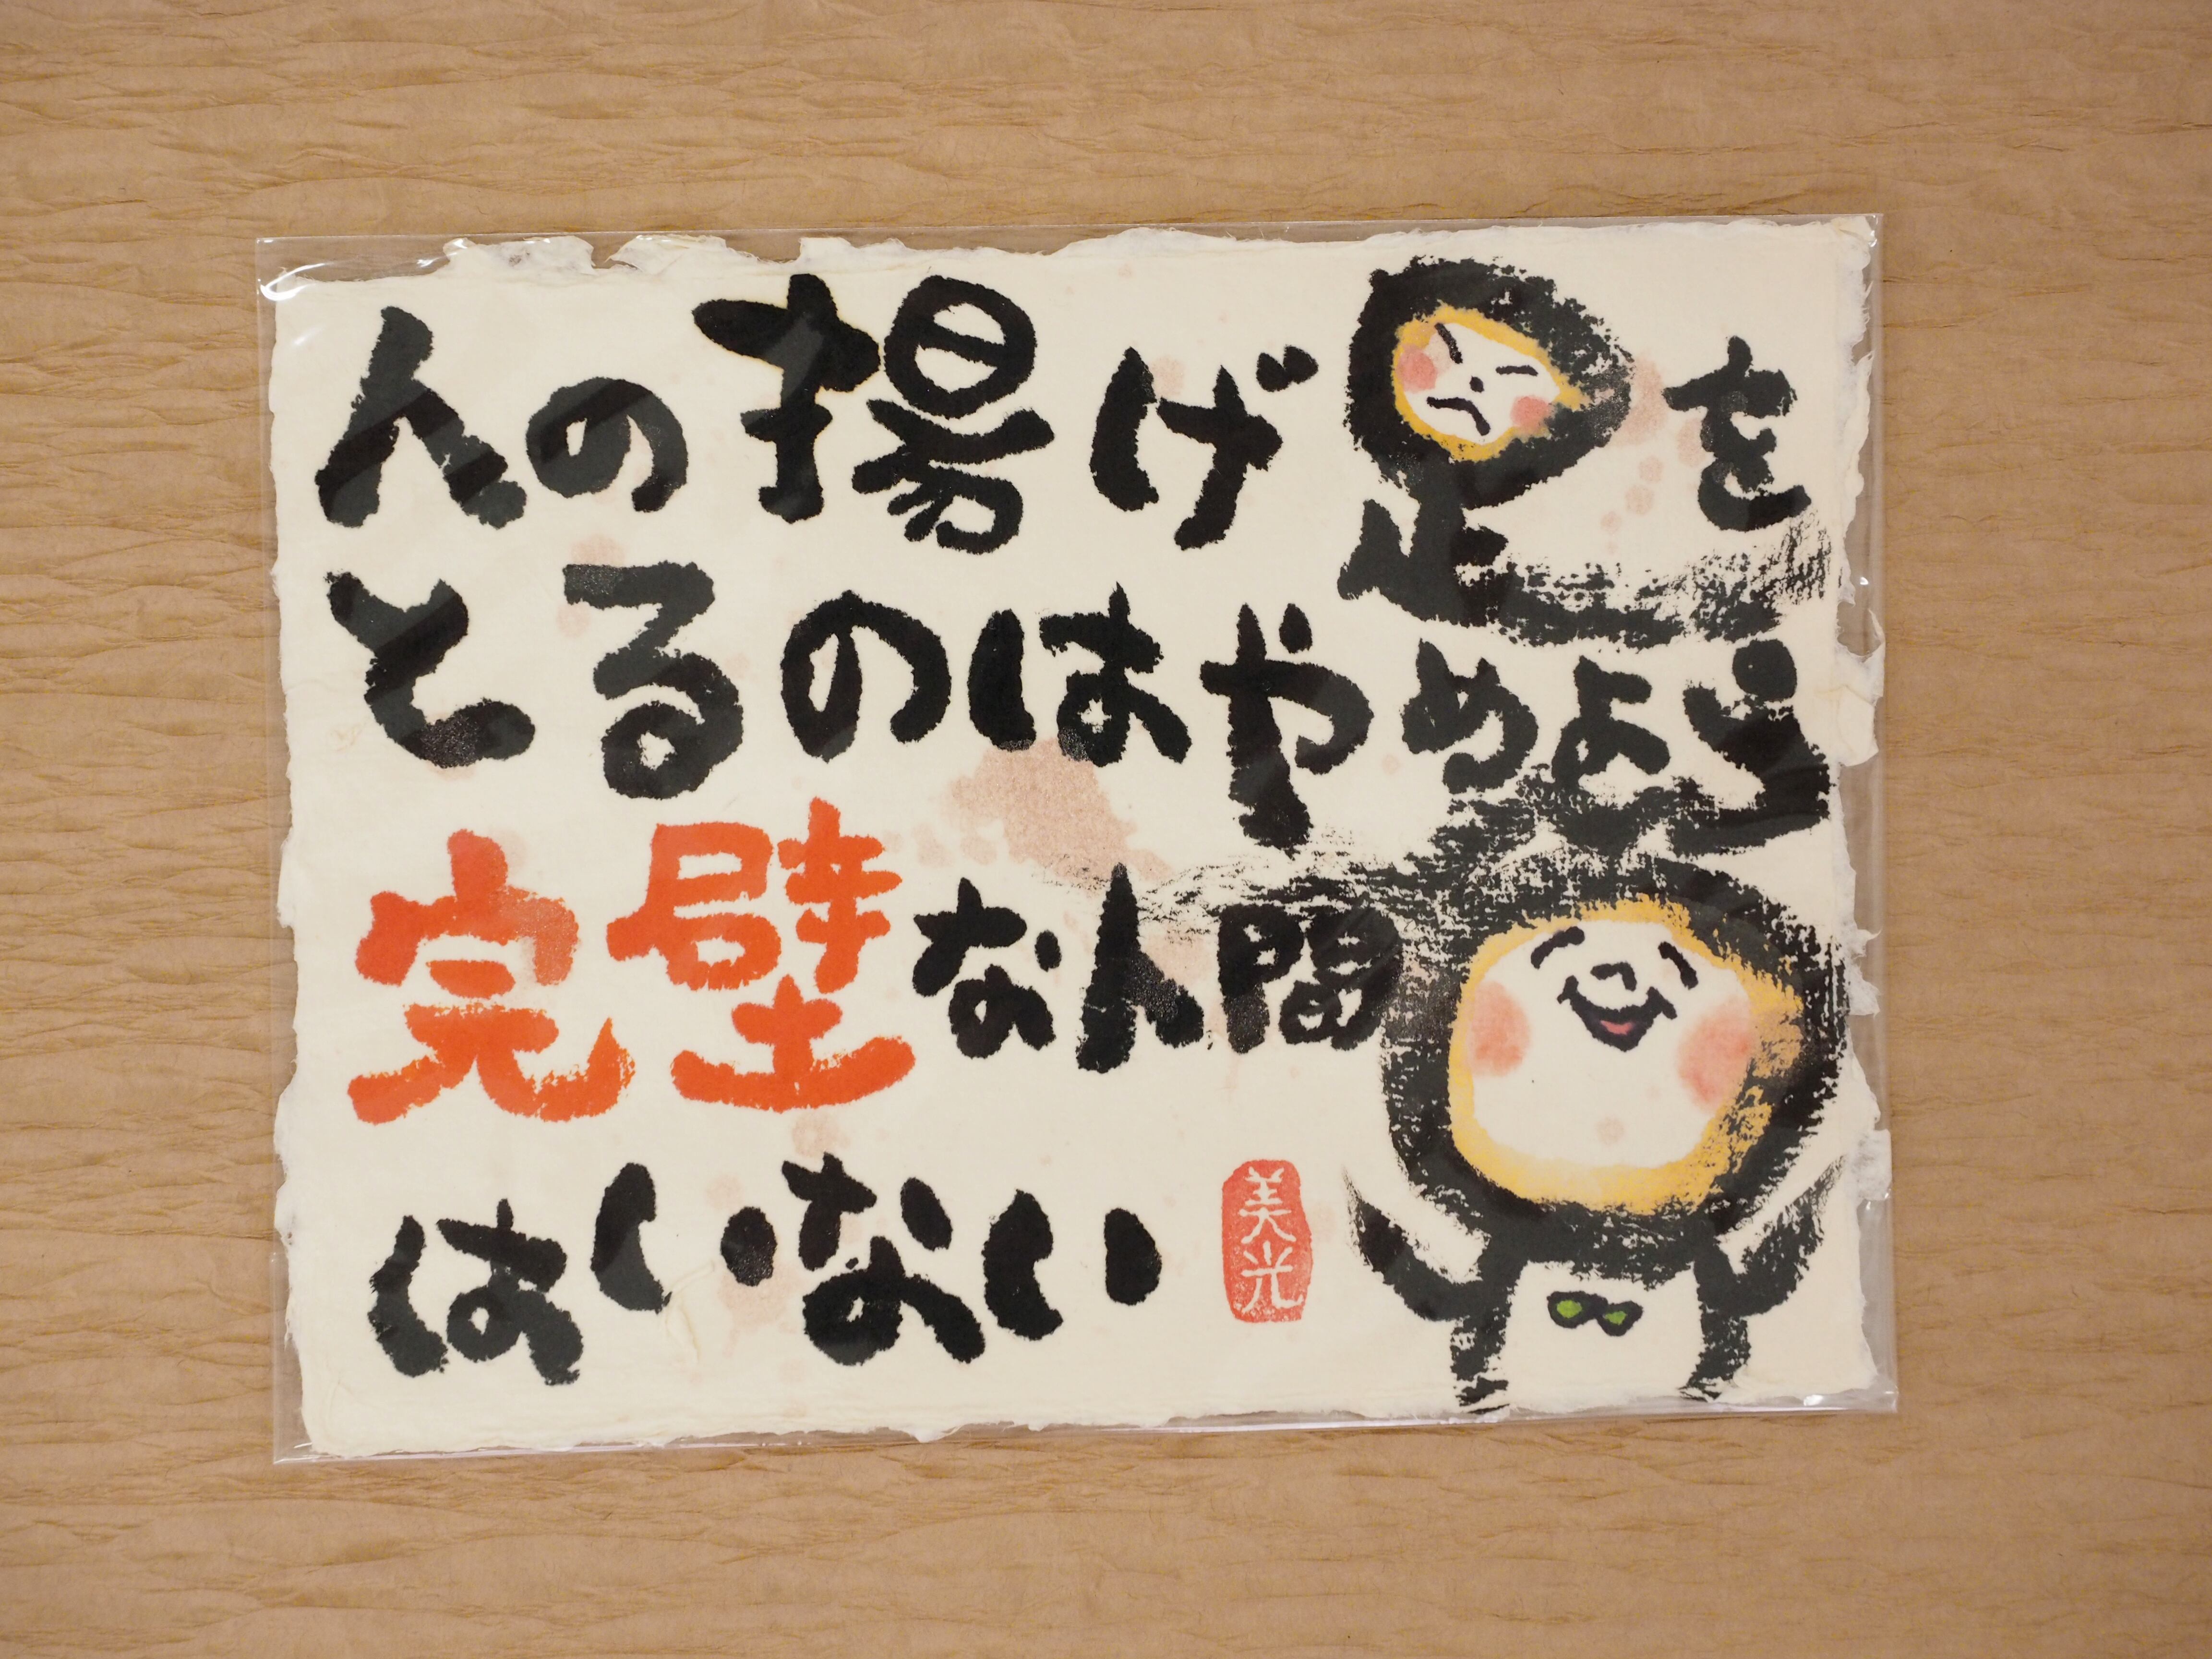 人の揚げ足を
とるのはやめよう
完璧な人間
はいない
美光